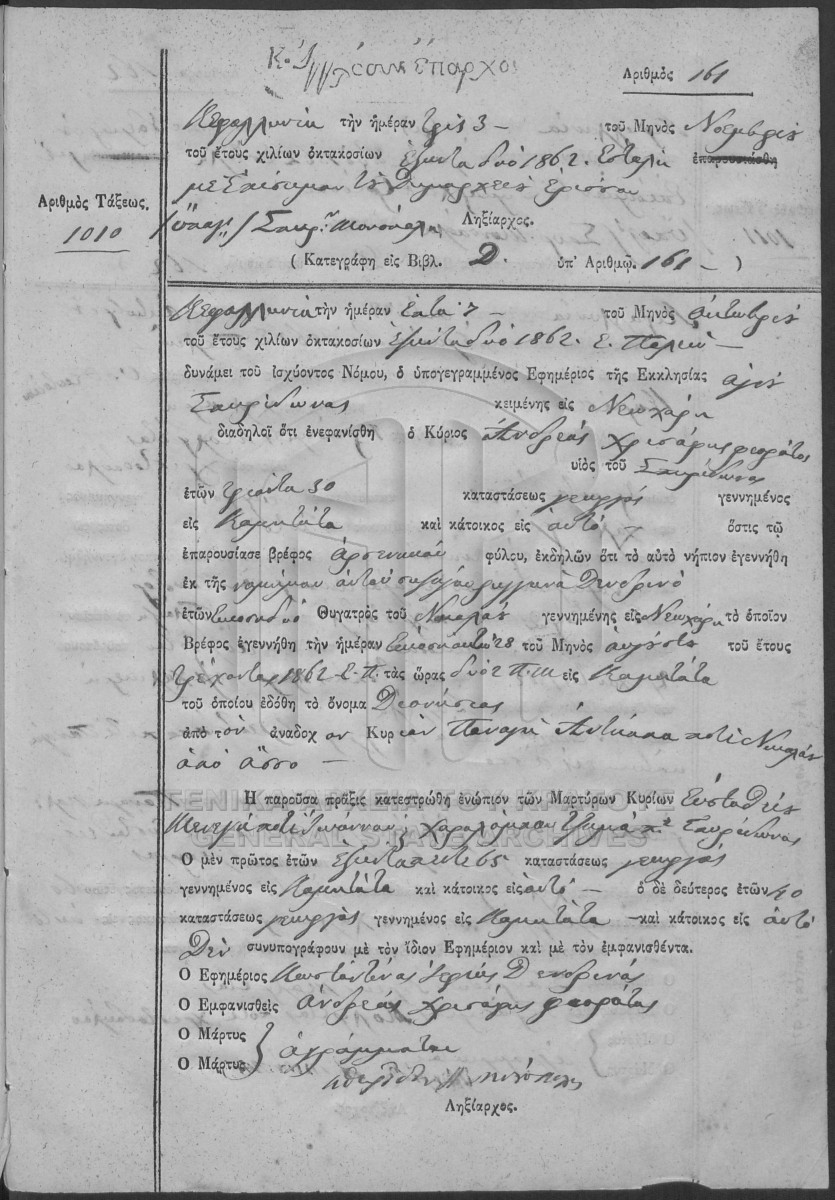 Ἀριθμὸς 161
Κεφαλληνία τὴν ἡμέραν τρὶς 3 — τοῦ Μηνὸς Νοεμβρίου
τοῦ ἔτους χιλίων ὀκτακοσίων ἑξήντα δυό 1862. Ἐστάλη ἐπαρουσιάσθη
Ἀριθμὸς Τάξεως.
1010
Ληξίαρχος.
( Κατεγράφη εἰς Βιβλ. 2. ὑπ' Ἀριθμῷ. 161 — )
Κεφαλληνία τὴν ἡμέραν ἑπτά 7 — τοῦ Μηνὸς ὀκτωβρίου
τοῦ ἔτους χιλίων ὀκτακοσίων ἑξήντα δυό 1862. Ε. Παλαιὸ —
δυνάμει τοῦ ἰσχύοντος Νόμου, ὁ ὑπογεγραμμένος Ἐφημέριος τῆς Ἐκκλησίας ἁγίου
Σπυρίδωνος κειμένης εἰς Νεοχόρι
διαδηλοῖ ὅτι ἐνεφανίσθη ὁ Κύριος Ἀνδρέας
υἱὸς τοῦ Σπυρίδωνος
ἐτῶν τριάντα 30 καταστάσεως γεωργός γεννημένος
εἰς Κομητάτα καὶ κάτοικος εἰς αὐτό — ὅστις τῷ
ἐπαρουσίασε βρέφος ἀρσενικοῦ φύλου, ἐκδηλῶν ὅτι τὸ αὐτὸ νήπιον ἐγεννήθη
ἐκ τῆς νομίμου αὐτοῦ συζύγου Δενδρινό
ἐτῶν εικοσιδυό Θυγατρὸς τοῦ Νικολάου γεννημένης εἰς Νεοχόρι τὸ ὁποῖον
Βρέφος ἐγεννήθη τὴν ἡμέραν Εικοσιοκτώ 28 τοῦ Μηνὸς αὐγούστου τοῦ ἔτους
τρέχοντος 1862 Ε. Π. τὰς ὥρας δυό 2 Π. Μ εἰς Κομητάτα
τοῦ ὁποίου ἐδόθη τὸ ὄνομα Διονήσιος
ἀπὸ τὸν ἀναδοχον Κυριον Παναγὴ ποτὲ Νικολάου
ἀπὸ ἄσσο —
Ἡ παροῦσα πρᾶξις κατεστρώθη ἐνώπιον τῶν Μαρτύρων Κυρίων Εὐσταθίου
ποτὲ Ἰωάννου Χαραλάμπου Σπυρίδωνος
Ὁ μὲν πρῶτος ἐτῶν ἑξήντα πέντε 65 καταστάσεως γεωργός
γεννημένος εἰς Κομητάτα καὶ κάτοικος εἰς αὐτό — ὁ δὲ δεύτερος ἐτῶν 40
καταστάσεως γεωργός γεννημένος εἰς Κομητάτα — καὶ κάτοικος εἰς αὐτό
Δὲν συνυπογράφουν μὲ τὸν ἴδιον Ἐφημέριον καὶ μὲ τὸν ἐμφανισθέντα.
Ὁ Ἐφημέριος Κωσταντίνος ἱερεύς Δενδρινός
Ὁ Ἐμφανισθεὶς ἀνδρέας
Ὁ Μάρτυς
Ὁ Μάρτυς ἀγράμματοι
Ληξίαρχος.
ΓΕΝΙΚΑ ΑΡΧΕΙΑ ΤΟΥ ΚΡΑΤΟΥΣ
GENERAL STATE ARCHIVES